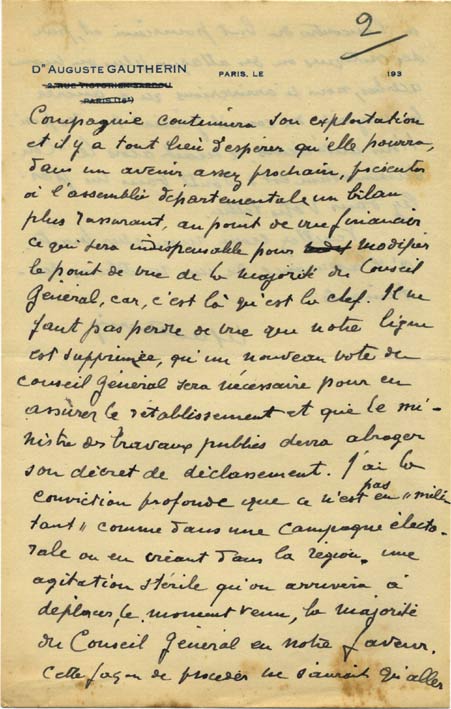 2
Dr AUGUSTE GAUTHERIN
2, RUE VICTORIEN SARDOU
PARIS (16e)
PARIS, LE 193
Compagnie continuera son exploitation
et il y a tout lieu d'espérer qu'elle pourra,
dans un avenir assez prochain, présenter
à l'assemblée départementale un bilan
plus rassurant, au point de vue financier
ce qui sera indispensable pour modifier
le point de vue de la majorité du Conseil
Général, car, c'est là qu'est la clef. Il ne
faut pas perdre de vue que notre ligne
est supprimée, qu'un nouveau vote du
Conseil Général sera nécessaire pour en
assurer le rétablissement et que le mi-
nistre des travaux publics devra abroger
son décret de déclassement. J'ai la
conviction profonde que ce n'est pas en "mili
tant" comme dans une campagne électo-
rale ou en créant dans la région, une
agitation stérile qu'on arrivera à
déplacer, le moment venu, la majorité
du Conseil Général en notre faveur.
Cette façon de procéder ne saurait qu'aller